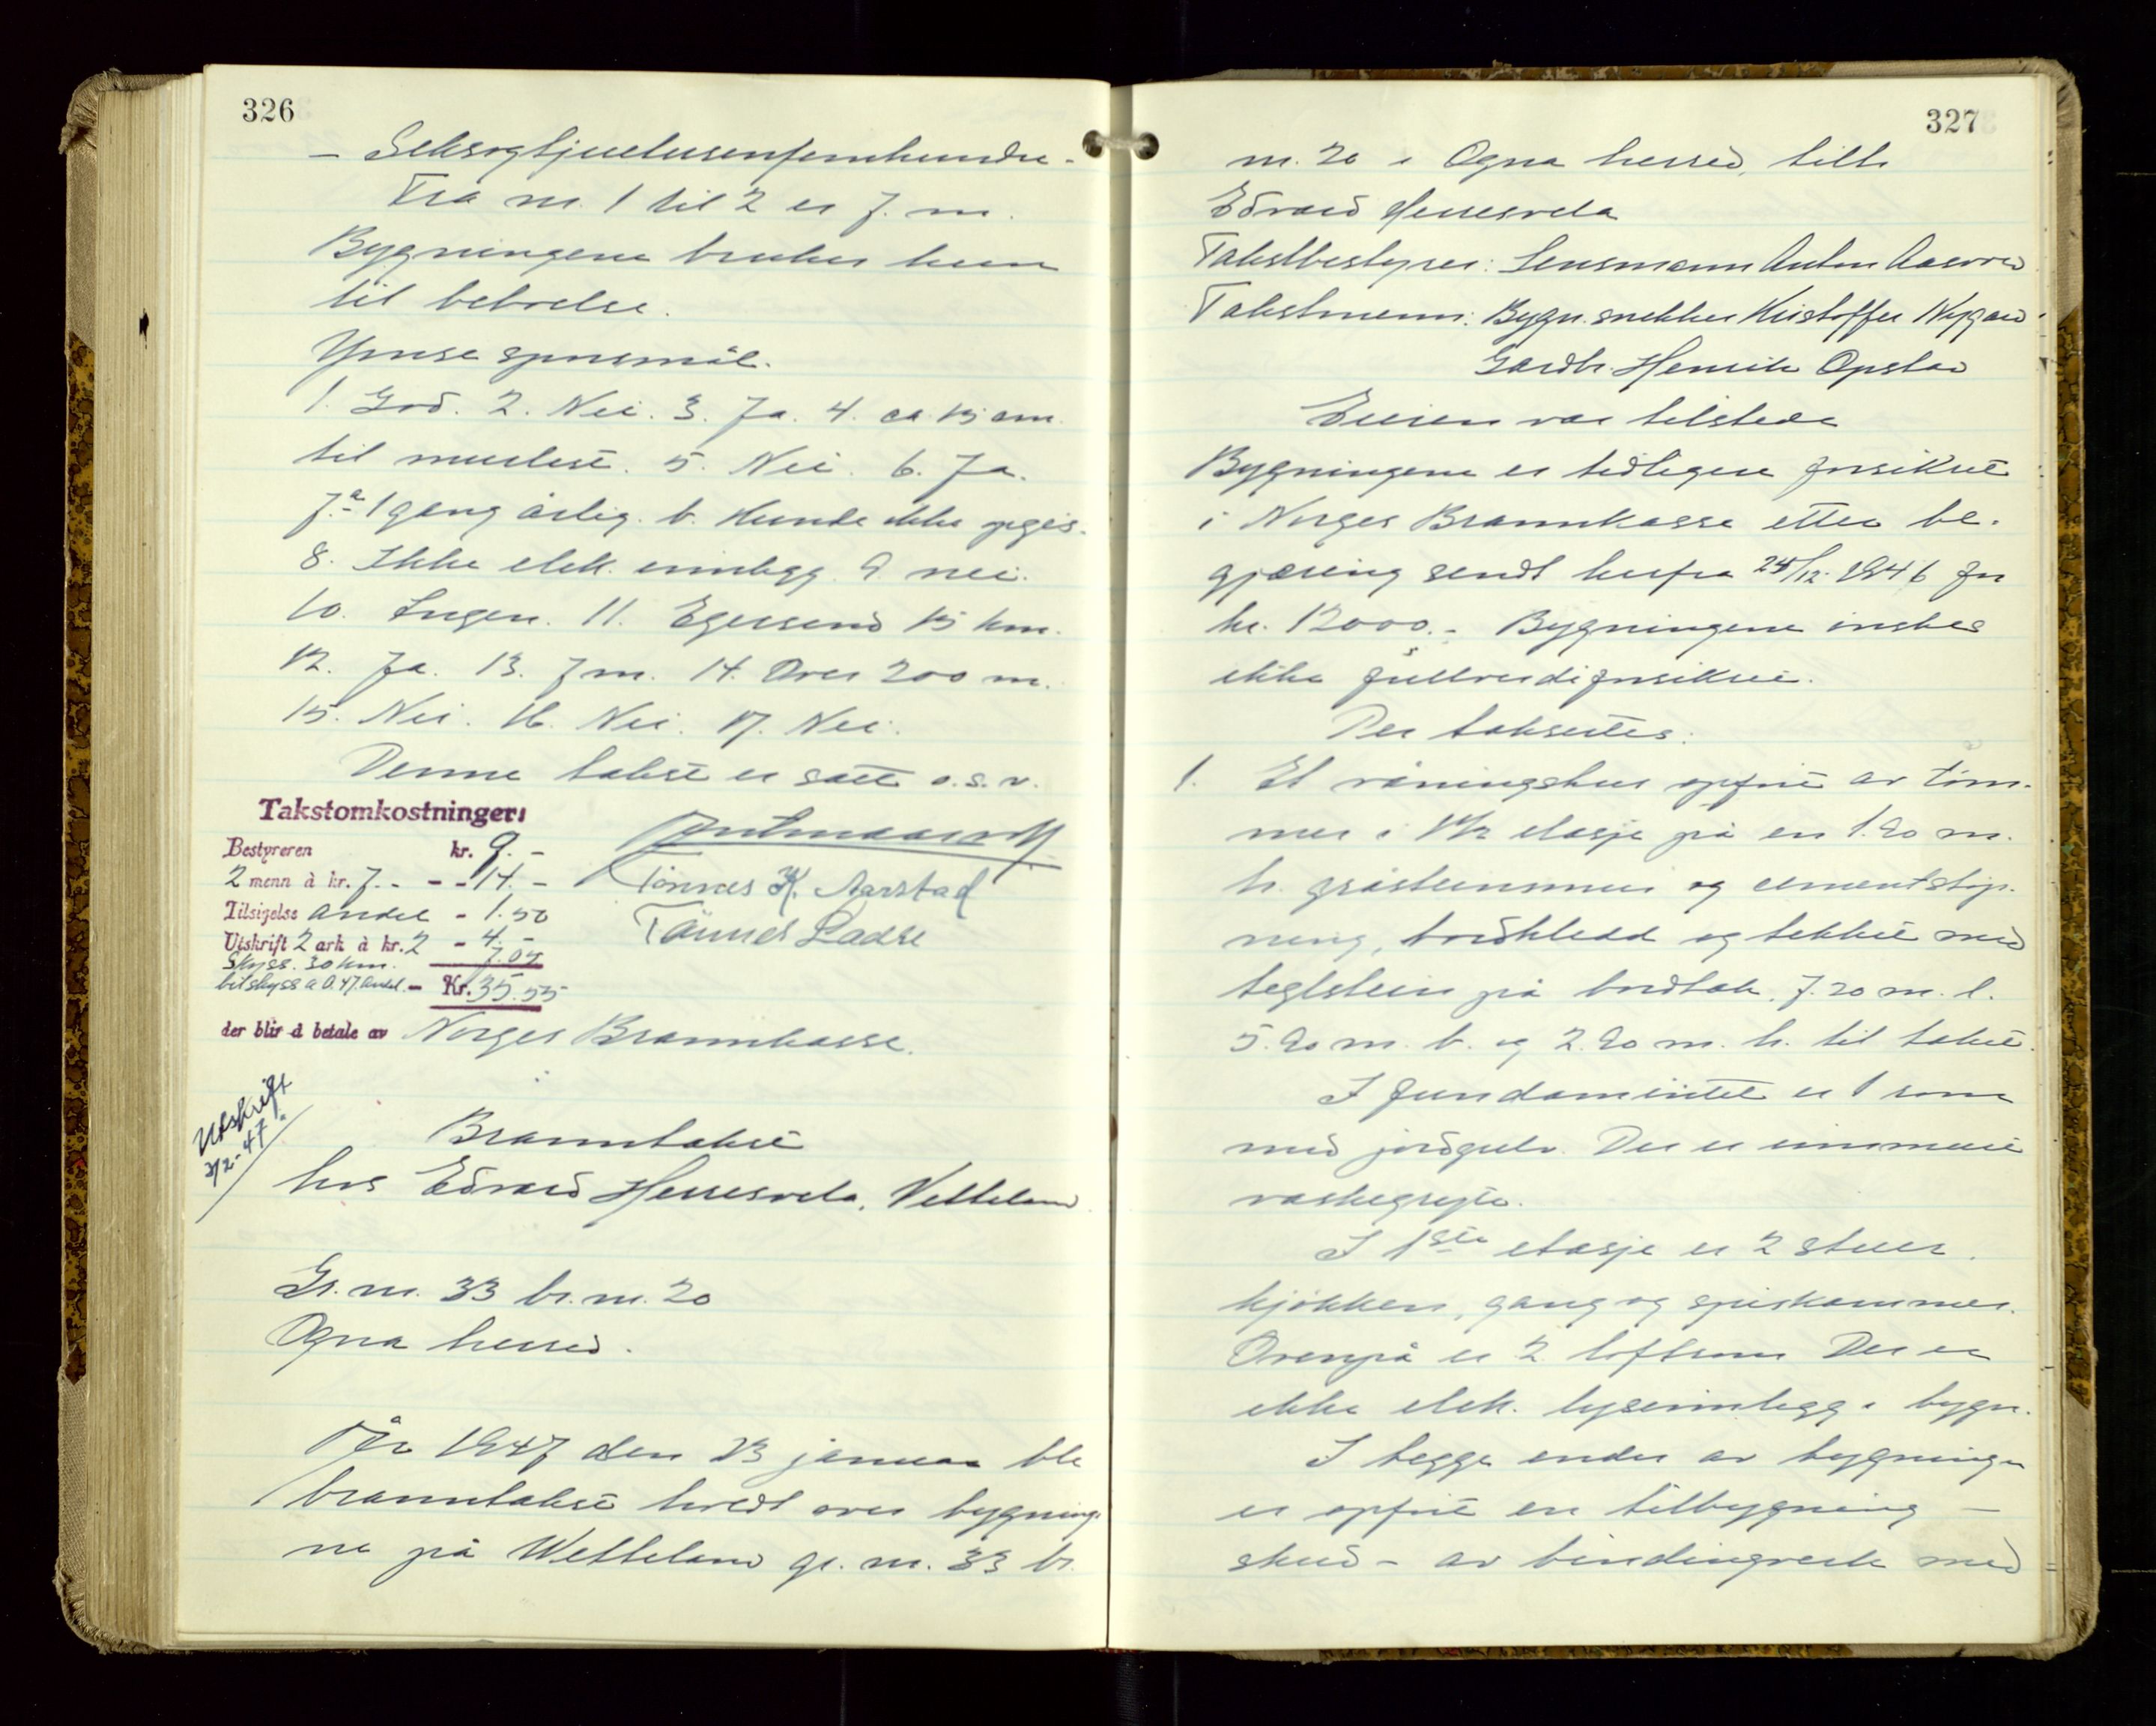 326
— Seksogtjuetusenfemhundre -
Fra nr. 1 til 2 er 7. m.
Bygningene brukes kun
til beboelse.
Ymse spørsmål.
1. God. 2. Nei. 3. Ja. 4. ca 15 cm.
til murlist. 5. Nei. 6. Ja.
7.a 1 gang årlig. b. Kunde ikke opgis.
8. Ikke elek. innlegg. 9 nei.
10. Ingen. 11. Egersund 15 km.
12. Ja. 13. 7 m. 14. Over 200 m.
15. Nei. 16. Nei. 17. Nei.
Denne takst er satt o.s.v.
Takstomkostninger:
Bestyreren kr. 9.-
2 menn à kr. 7.- - - 14.-
Tilsigelse andel - 1.50
Utskrift 2 ark à kr. 2 - 4.-
Skyss. 30 km. 7.05
bilskyss a 0.47. andel. - Kr. 35.55
der blir å betale av Norges Brannkasse.
Tønnes K. Aarstad
Tønnes Ladse
Utskrift
3/2-47.
Branntakst
hos Edvard Herresvela, Vetteland
Gr. nr. 33 br. nr. 20
Ogna herred.
År 1947 den 23 januar ble
branntakst holdt over bygninge-
ne på Wetteland gr. nr. 33 br.
327
nr. 20 i Ogna herred, tilh.
Edvard Herresvela
Takstbestyrer: Lensmann Anton Aasvold
Takstmenn: Bygn. snekker Kristoffer Nygård
Gardbr. Henrik Opstad
Eieren var tilstede
Bygningene er tidligere forsikret
i Norges Brannkasse etter be-
gjæring sendt herfra 24/12-1946 for
kr. 12000.- Bygningene ønskes
ikke fullverdiforsikret.
Der takseres:
1. Et våningshus opført av tøm-
mer i 1 1/2 etasje på en 1.20 m.
h. gråsteinsmur og cementstøp-
ning, bordkledd og tekket med
teglstein på bordtak. 7.20 m. l.
5.20 m. b. og 2.90 m. h. til taket.
I fundamentet er 1 rom
med jordgulv. Der er innmuret
vaskegryte.
I 1ste etasje er 2 stuer,
kjøkken, gang og spiskammer.
Ovenpå er 2 loftsrom Der er
ikke elek. lysinnlegg i bygn.
I begge ender av bygningen
er opført en tilbygning —
skud - av bindingverk med